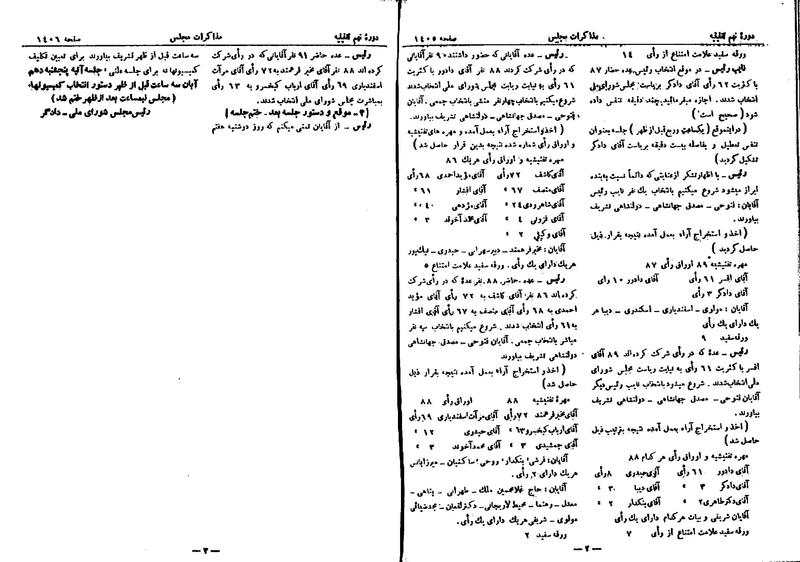 دورهٔ نهم تقنینیه
مذاکرات مجلس
صفحه ۱۴۰۵
ورقه سفید علامت امتناع از رأی ۱۴
نایب رئیس – در موقع انتخاب رئیس عده حضار ۸۷
با کثریت ۶۲ رأی آقای دادگر بریاست مجلس شورای ملی
انتخاب شدند. اجازه میفرمائید چند دقیقه تنفس داده
شود (صحیح است)
(در اینموقع (یکساعت و ربع قبل از ظهر) جلسه بعنوان
تنفس تعطیل و بفاصله بیست دقیقه بریاست آقای دادگر
تشکیل گردید)
رئیس – با اظهار تشکر از عنایتی که دائماً نسبت به بنده
ابراز میشود شروع میکنیم بانتخاب یک نفر نایب رئیس
آقایان: فتوحی – مصدق جهانشاهی – دولتشاهی تشریف
بیاورند.
(اخذ و استخراج آراء بعمل آمده نتیجه بقرار ذیل
حاصل گردید)
مهره تفتیشیه ۸۹ اوراق رأی ۸۷
آقای افسر ۶۱ رأی آقای دادور ۱۰ رای
آقای دادگر ۳ رأی
آقایان: مولوی – اسفندیاری – اسکندری – دیبا هر
یک دارای یک رأی
ورقه سفید ۹
رئیس – عدهٔ که در رأی شرکت کرده اند ۸۹ آقای
افسر با کثریت ۶۱ رأی به نیابت ریاست مجلس شورای
ملی انتخاب شدند. شروع میشود بانتخاب نایب رئیس دیگر
آقایان فتوحی – مصدق جهانشاهی – دولتشاهی تشریف
بیاورند.
(اخذ و استخراج آراء بعمل آمده نتیجه بترتیب ذیل
حاصل شد)
مهره تفتیشیه و اوراق رأی هر کدام ۸۸
آقای دادور ۶۱ رأی آقای حیدری ۸ رأی
آقای دادگر ۳ » آقای دیبا ۳ »
آقای دکتر طاهری ۲ » آقای بنکدار ۲ »
آقایان شریفی و بیات هر کدام دارای یک رأی
ورقه سفید علامت امتناع از رأی ۷
رئیس – عده آقایانی که حضور داشتند ۹۰ نفر آقایانی
که در رأی شرکت کردند ۸۸ نفر آقای دادور با کثریت
۶۱ رأی به نیابت ریاست مجلس شورای ملی انتخاب شدند
شروع میکنیم بانتخاب چهار نفر منشی بانتخاب جمعی. آقایان
فتوحی – مصدق جهانشاهی – دولتشاهی تشریف بیاورند.
(اخذ و استخراج آراء بعمل آمده و مهره های تفتیشیه
و اوراق رأی شماره شده نتیجه بدین قرار حاصل شد)
مهره تفتیشیه و اوراق رأی هریک ۸۶
آقای کاشف ۷۲ رأی آقای مؤید احمدی ۶۸ رأی
آقای منصف ۶۷ » آقای افشار ۶۱ »
آقای شاهرودی ۲۴ »
آقای قزونی ۴ » آقای محمد آخوند ۳ »
آقای وکیلی ۲ »
آقایان: مخبر فرهمند – دبیر سهرابی – حیدری – نیک پور
هر یک دارای یک رأی. ورقه سفید علامت امتناع ۵
رئیس – عده حاضر ۸۸ نفر عدهٔ که در رأی شرکت
کرده اند ۸۶ نفر آقای کاشف به ۷۲ رأی آقای مؤید
احمدی به ۶۸ رأی آقای منصف به ۶۷ رأی آقای افشار
به ۶۱ رأی انتخاب شدند. شروع میکنیم بانتخاب سه نفر
مباشر بانتخاب جمعی. آقایان فتوحی – مصدق جهانشاهی
دولتشاهی تشریف بیاورند
(اخذ و استخراج آراء بعمل آمده نتیجه بقرار ذیل
حاصل شد)
مهرهٔ تفتیشیه ۸۸ اوراق رأی ۸۸
آقای مخبر فرهمند ۷۲ رأی آقای مرآت اسفندیاری ۶۹ رأی
آقای ارباب کیخسرو ۶۳ » آقای حیدری ۱۲ »
آقای جمشیدی ۳ » آقای محمد آخوند ۳ »
آقایان: قرشی بنکدار روحی ساکنیان – میرزایانس
هر یک دارای ۲ رأی.
آقایان: حاج غلامحسین ملک – طهرانی – پناهی –
معدل – رهنما – محیط لاریجانی – دکتر لقمان – مجد ضیائی
مولوی – شریفی هر یک دارای یک رأی.
ورقه سفید ۲
– ۲ –
دورهٔ نهم تقنینیه
مذاکرات مجلس
صفحه ۱۴۰۶
رئیس – عده حاضر ۹۱ نفر آقایانی که در رأی شرکت
کرده اند ۸۸ نفر آقای مخبر فرهمند به ۷۲ رأی آقای مرآت
اسفندیاری ۶۹ رأی آقای ارباب کیخسرو به ۶۳ رأی
بمباشرت مجلس شورای ملی انتخاب شدند.
[۳ – موقع و دستور جلسه بعد – ختم جلسه]
رئیس – از آقایان تمنی میکنم که روز دوشنبه هفتم
سه ساعت قبل از ظهر تشریف بیاورند برای تعیین تکلیف
کمیسیونها نه برای جلسه علنی؛ جلسه آتیه پنجشنبه دهم
آبان سه ساعت قبل از ظهر دستور انتخاب کمیسیونها.
(مجلس نیمساعت بعد از ظهر ختم شد)
رئیس مجلس شورای ملی – دادگر
– ۳ –